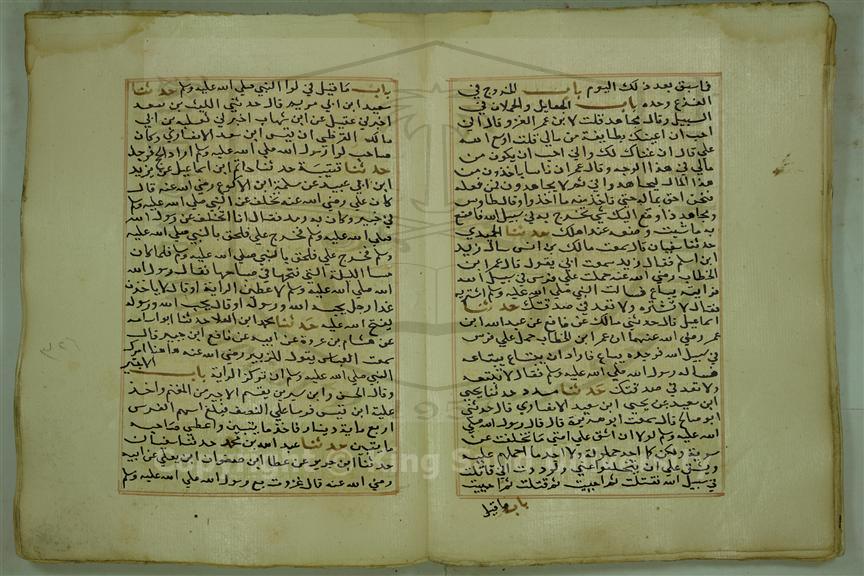 فما سبق بعد ذلك اليوم باب الخروج في
الفزع وحده باب الجعايل والحملان في
السبيل وقال مجاهد قلت لابن عمر الغزو قال اني
احب ان اعينك بطايفة من مالي قلت اوسع الله
علي قال ان غناك لك واني احب ان يكون من
مالي في هذا الوجه وقال عمر ان ناسا ياخذون من
هذا المال ليجاهدوا ثم لا يجاهدون فمن فعله
فنحن احق بماله حتى ناخذ منه ما اخذ وقال طاوس
ومجاهد اذا دفع اليك شي تخرج به في سبيل الله فاصنع
به ما شيت وضعه عند اهلك حدثنا الحميدي
حدثنا سفيان قال سمعت مالك بن انس سال زيد
ابن اسلم فقال زيد سمعت ابي يقول قال عمر ابن
الخطاب رضي الله عنه حملت على فرس في سبيل الله
فرايته يباع فسالت النبي صلى الله عليه وسلم اشتريه
فقال لا تشتره ولا تعد في صدقتك حدثنا
اسماعيل قال حدثني مالك عن نافع عن عبدالله ابن
عمر رضي الله عنهما ان عمر ابن الخطاب حمل على فرس
في سبيل الله فوجده يباع فاراد ان يبتاعه
فسال رسول الله صلى الله عليه وسلم فقال لا تبتعه
ولا تعد في صدقتك حدثنا مسدد حدثنا يحيى
ابن سعيد عن يحيى ابن سعيد الانصاري قال حدثني
ابو صالح قال سمعت ابو هريرة قال قال رسول الله صلى
الله عليه وسلم لولا ان اشق على امتي ما تخلفت عن
سرية ولكن لا اجد حمولة ولا اجد ما احملهم عليه
ويشق علي ان يتخلفوا عني ولوددت اني قاتلت
في سبيل الله فقتلت ثم احييت ثم قتلت ثم احييت
باب ما قيل
باب ما قيل في لوا النبي صلى الله عليه وسلم حدثنا
سعيد ابن ابي مريم قال حدثني الليث بن سعد
اخبرني عقيل عن ابن شهاب اخبرني ثعلبة بن ابي
مالك القرظي ان قيس ابن سعد الانصاري وكان
صاحب لوا رسول الله صلى الله عليه وسلم اراد الحج فرجل
حدثنا قتيبة حدثنا حاتم ابن اسماعيل عن يزيد
ابن ابي عبيد عن سلمة ابن الاكوع رضي الله عنه قال
كان علي رضي الله عنه تخلف عن النبي صلى الله عليه وسلم
في خيبر وكان به رمد فقال انا اتخلف عن رسول الله
صلى الله عليه وسلم فخرج علي فلحق بالنبي صلى الله عليه
وسلم فخرج علي فلحق بالنبي صلى الله عليه وسلم فلما كان
مسا الليلة التي فتحها في صباحها فقال رسول الله
صلى الله عليه وسلم لاعطين الراية او قال لياخذن
غدا رجل يحبه الله ورسوله او قال يحب الله ورسوله
يفتح الله عليه حدثنا محمد ابن العلا حدثنا ابو اسامه
عن هشام بن عروة عن ابيه عن نافع ابن جبير قال
سمعت العباس يقول للزبير رضي الله عنه هاهنا امرك
النبي صلى الله عليه وسلم ان تركز الراية باب الاجير
وقال الحسن وابن سيرين يقسم الاجير من المغنم واخذ
عطية ابن قيس فرسا على النصف فبلغ اسهم الفرس
اربع ماية دينار فاخذ مايتين واعطى صاحبه
مايتين حدثنا عبد الله بن محمد حدثنا سفيان
حدثنا ابن جريج عن عطا ابن صفوان ابن يعلى عن ابيه
رضي الله عنه قال غزوت مع رسول الله صلى الله عليه وسلم